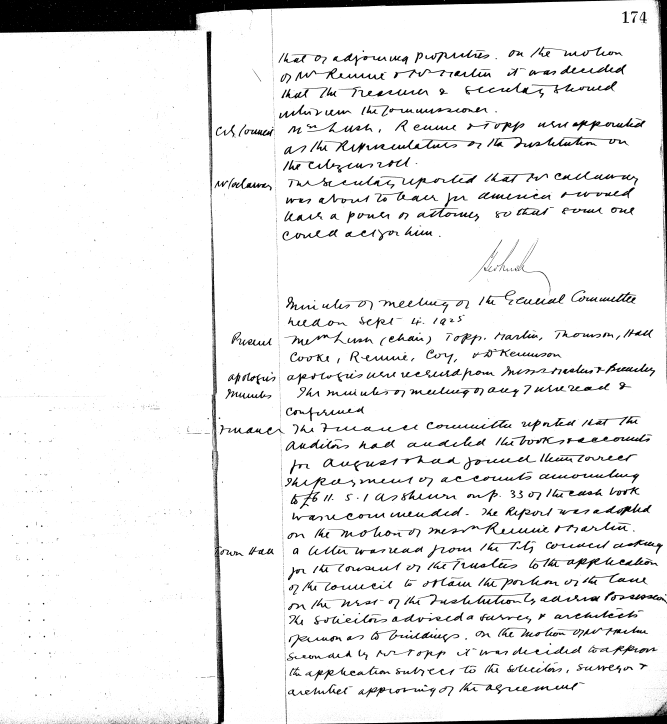 174
that of adjoining properties. On the motion
of Mr Rennie & Mr Martin it was decided
that the Treasurer & Secretary should
interview the Commissioner.
City Council Messrs Lush, Rennie & Topp were appointed
as the Representatives of the Institution on
the Citizens roll.
Mr Callaway The Secretary reported that Mr Callaway
was about to leave for America & would
leave a power of attorney so that some one
could act for him.
Minutes of meeting of the General Committee
held on Sept 4. 1925
Present Messrs Lush (Chair) Topp. Martin, Thomson, Hall
Cooke, Rennie, Coy, & Dr Kennison
apologies apologies were received from
Minutes The minutes of meeting of Aug 7 were read &
confirmed
Finance The Finance Committee reported that the
Auditors had audited the books & accounts
for August & had found them correct
The payment of accounts amounting
to 11. 5. 1 as shewn on p. 33 of the cash book
was recommended. The Report was adopted
on the motion of Messrs Rennie & Martin.
Town Hall a letter was read from the City Council asking
for the consent of the Trustees to the application
of the Council to obtain the portion of the lane
on the West of the Institution by adverse Possession
The Solicitors advised a survey & architects
opinion as to buildings. On the motion of Mr
seconded by Mr Topp it was decided to approve
the application subject to the solicitors, surveyor &
architect approving of the agreement